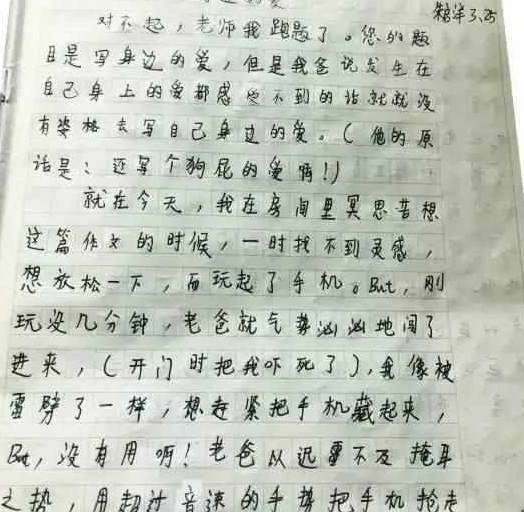 对不起，老师我跑题了。您的题
目是写身边的爱，但是我爸说发生在
自己身上的爱都感觉不到的话就就没
有资格去写自己身边的爱。（他的原
话是：还写个狗屁的爱啊！）
就在今天，我在房间里冥思苦想
这篇作文的时候，一时找不到灵感，
想放松一下，而玩起了手机。But，刚
玩没几分钟，老爸就气势汹汹地闯了
进来，（开门时把我吓死了），我像被
雷劈了一样，想赶紧把手机藏起来，
But，没有用啊！老爸以迅雷不及掩耳
之势，用超过音速的手势把手机抢走